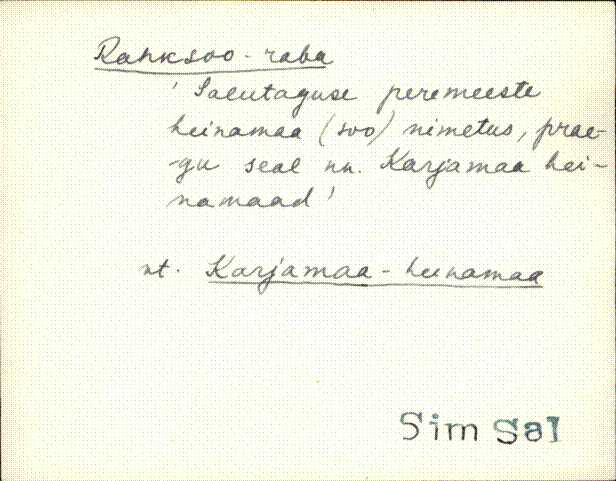 Rahksoo-raba
'Salutaguse peremeeste
heinamaa (soo) nimetus, prae-
-gu seal nn. Karjamaa hei-
namaad'
nt. Karjamaa-heinamaa
Sim Sal